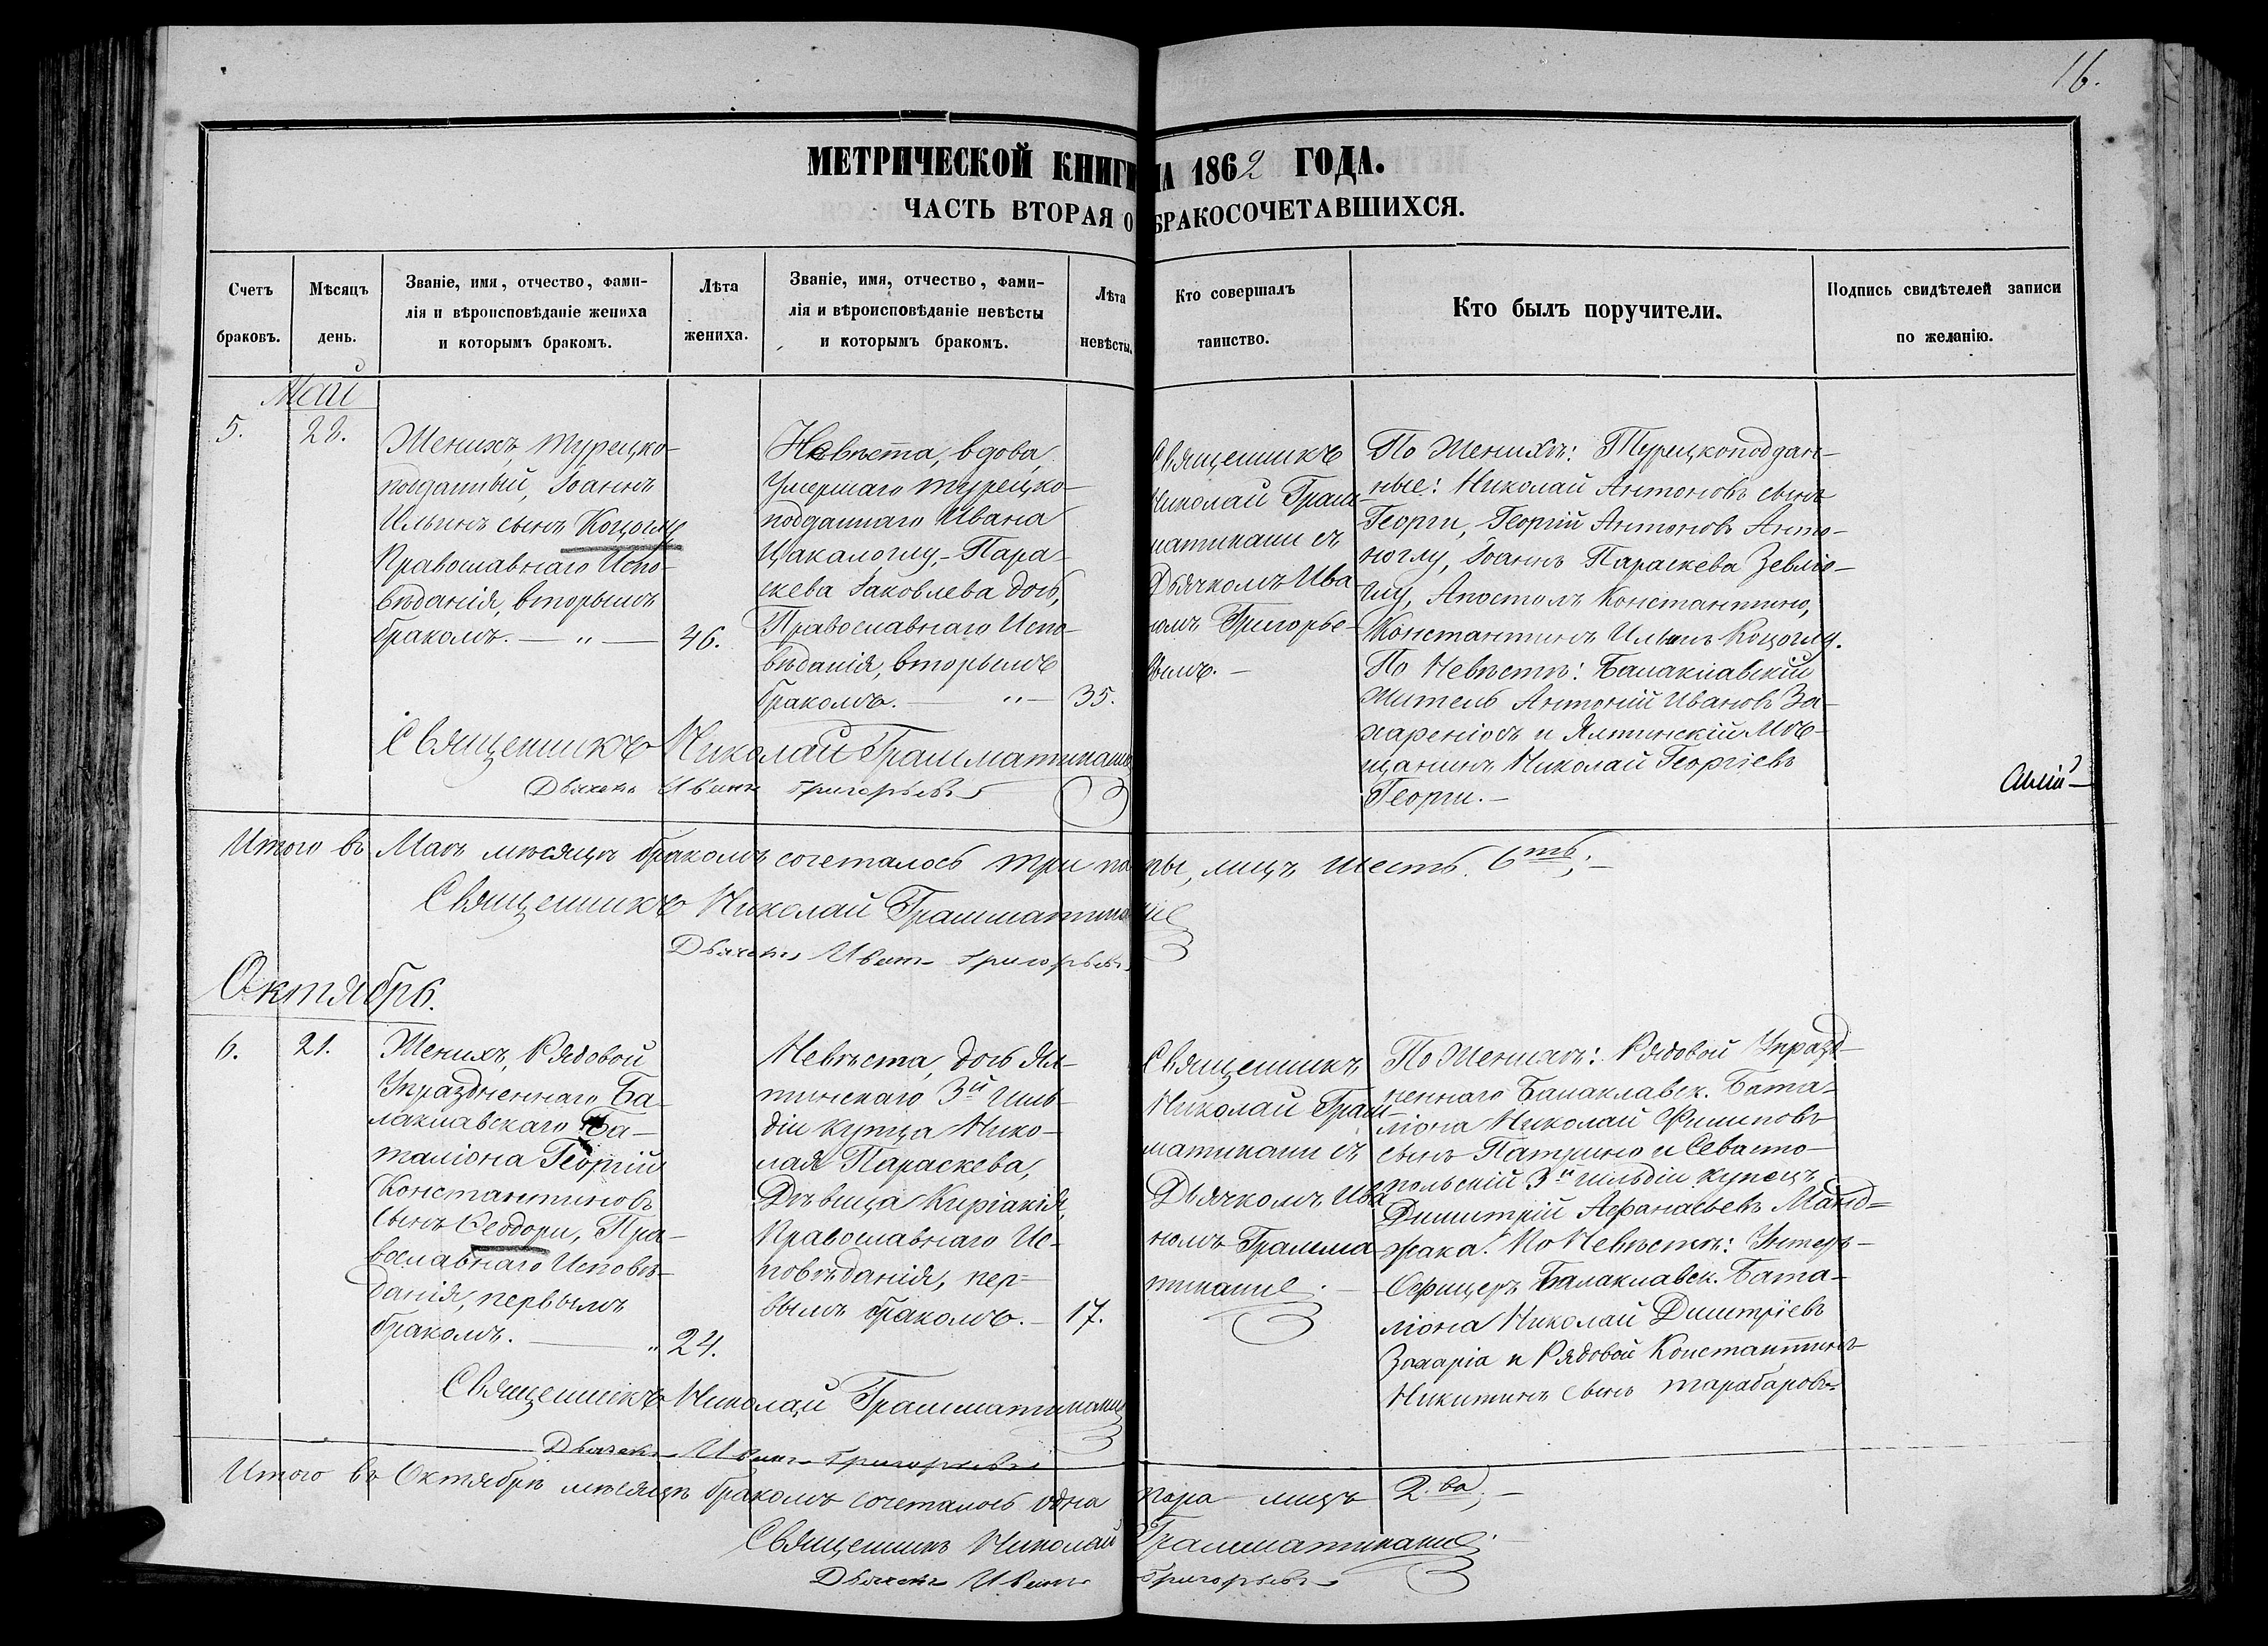 16.
МЕТРИЧЕСКОЙ КНИГИ НА 1862 ГОДА.
ЧАСТЬ ВТОРАЯ О БРАКОСОЧЕТАВШИХСЯ.
Счетъ
браковъ.
Мѣсяцъ
день.
Званіе, имя, отчество, фами-
лія и вѣроисповѣданіе жениха
и которымъ бракомъ.
Лѣта
жениха.
Званіе, имя, отчество, фами-
лія и вѣроисповѣданіе невѣсты
и которымъ бракомъ.
Лѣта
невѣсты.
Кто совершалъ
таинство.
Кто былъ поручители.
Подпись свидѣтелей записи
по желанію.
Май
5.
28.
Женихъ, турецко-
подданный, Іоаннъ
Ильинъ сынъ Коцоглу
Православнаго Испо-
вѣданія, вторымъ
бракомъ. — „ —
46.
Невѣста, вдова,
Умершаго турецко-
подданнаго Ивана
Цакалоглу, - Пара-
скева Іаковлева дочь,
Православнаго Испо-
вѣданія, вторымъ
бракомъ. — „ —
35.
Священникъ
Николай Грам-
матикани съ
Дьячкомъ Ива-
номъ Григорье-
вымъ. -
По Женихѣ: Турецкоподдан-
ные: Николай Антоновъ сынъ
Георги, Георгій Антоновъ Анто-
ноглу, Іоаннъ Параскева Зевліо-
глу, Апостолъ Константино,
Константинъ Ильинъ Коцоглу.
По Невѣстѣ: Балаклавскій
житель Антоній Ивановъ За-
хареніовъ и Ялтинскій Мѣ-
щанинъ Николай Георгіевъ
Георги. -
Священникъ Николай Грамматикани
Дьячекъ Иванъ Григорьевъ
Итого въ Маѣ мѣсяцѣ бракомъ сочеталось три пары, лицъ шесть. 6ть; -
Священникъ Николай Грамматикани
Дьячекъ Иванъ Григорьевъ
Октябрь.
6.
21.
Женихъ, Рядовой
Упраздненнаго Ба-
лаклавскаго Ба-
таліона Георгій
Константиновъ
сынъ Феодори, Пра-
вославнаго Исповѣ-
данія, первымъ
бракомъ. — „
24.
Невѣста, дочь Ял-
тинскаго 3й гиль-
діи купца Нико-
лая Параскева,
Дѣвица Киріакія,
Православнаго Ис-
повѣданія, пер-
вымъ бракомъ. -
17.
Священникъ
Николай Грам-
матикани съ
Дьячкомъ Ива
номъ Грамма
тикани. -
По Женихѣ: Рядовой Упразд-
неннаго Балаклавск. Бата-
ліона Николай Филиповъ
сынъ Патрино и Севасто-
польскій 3й гильдіи купецъ
Димитрій Афанасьевъ Манд-
жака. По Невѣстѣ: Унтеръ-
Офицеръ Балаклавск. Бата-
ліона Николай Димитріевъ
Захаріа и Рядовой Константинъ
Никитинъ сынъ тарабаровъ
Священникъ Николай Грамматикани
Дьячекъ Иванъ Григорьевъ
Итого въ Октябрѣ мѣсяцѣ бракомъ сочеталось одна пара лицъ 2.ва; -
Священникъ Николай Грамматикани
Дьячекъ Иванъ Григорьевъ